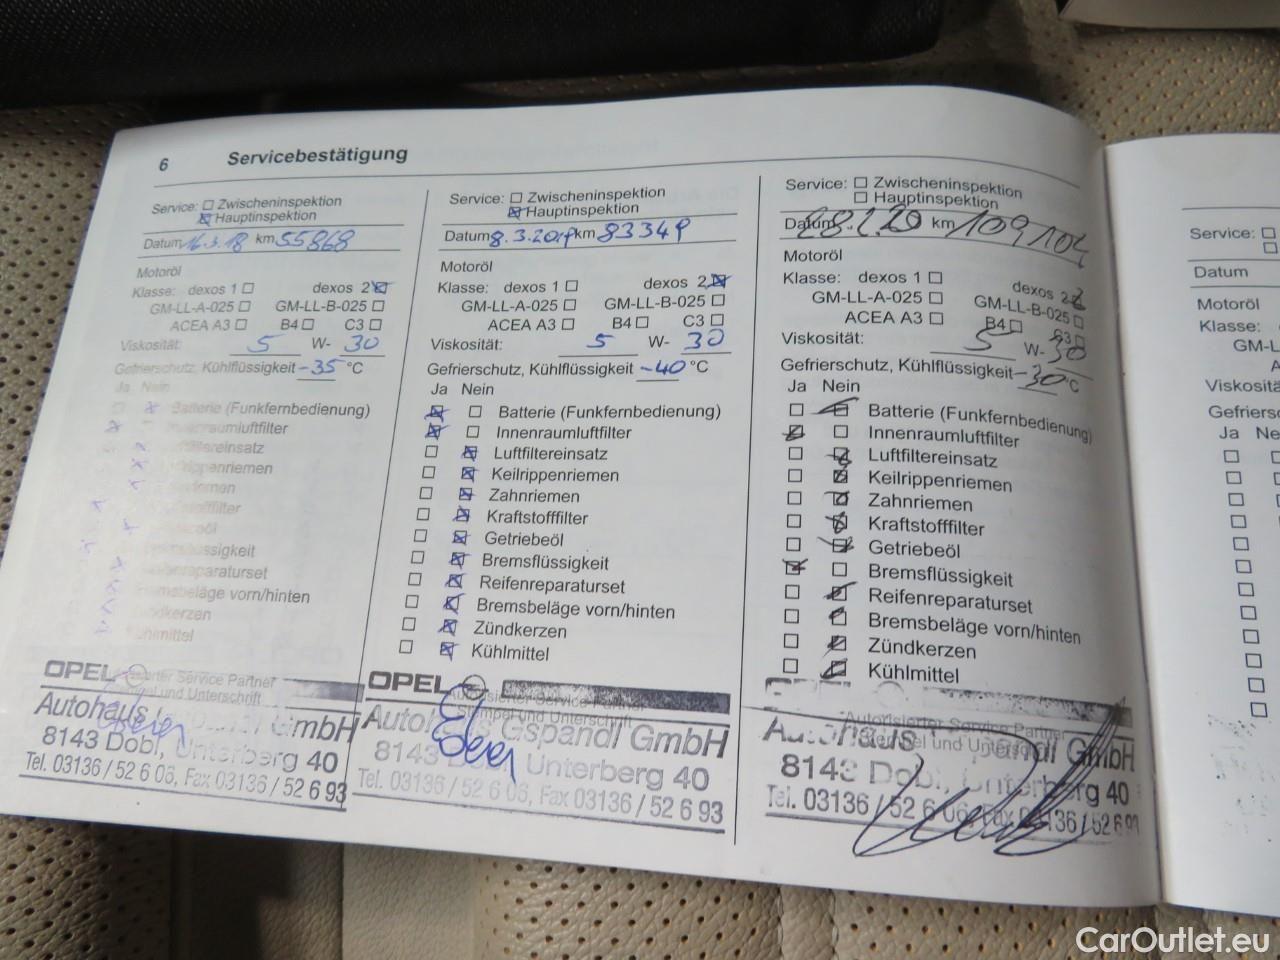 6 Servicebestätigung
Service: Zwischeninspektion
Hauptinspektion
Datum 16.3.18 km 55868
Motoröl
Klasse: dexos 1 dexos 2
GM-LL-A-025 GM-LL-B-025
ACEA A3 B4 C3
Viskosität: 5 W- 30
Gefrierschutz, Kühlflüssigkeit -35 °C
Ja Nein
Batterie (Funkfernbedienung)
Innenraumluftfilter
Luftfiltereinsatz
Keilrippenriemen
Bremsbeläge vorn/hinten
OPEL
Autorisierter Service Partner
Stempel und Unterschrift
Autohaus GmbH
8143 Dobl, Unterberg 40
Tel. 03136 / 52 6 06, Fax 03136 / 52 6 93
Service: Zwischeninspektion
Hauptinspektion
Datum 8.3.2019 km 83349
Motoröl
Klasse: dexos 1 dexos 2
GM-LL-A-025 GM-LL-B-025
ACEA A3 B4 C3
Viskosität: 5 W- 30
Gefrierschutz, Kühlflüssigkeit -40 °C
Ja Nein
Batterie (Funkfernbedienung)
Innenraumluftfilter
Luftfiltereinsatz
Keilrippenriemen
Zahnriemen
Kraftstofffilter
Getriebeöl
Bremsflüssigkeit
Reifenreparaturset
Bremsbeläge vorn/hinten
Zündkerzen
Kühlmittel
OPEL
Autorisierter Service Partner
Stempel und Unterschrift
Autohaus Gspandl GmbH
8143 Dobl, Unterberg 40
Tel. 03136 / 52 6 06, Fax 03136 / 52 6 93
Service: Zwischeninspektion
Hauptinspektion
Datum 28.2.20 km 109104
Motoröl
Klasse: dexos 1 dexos 2
GM-LL-A-025 GM-LL-B-025
ACEA A3 B4 C3
Viskosität: 5 W- 30
Gefrierschutz, Kühlflüssigkeit -30 °C
Ja Nein
Batterie (Funkfernbedienung)
Innenraumluftfilter
Luftfiltereinsatz
Keilrippenriemen
Zahnriemen
Kraftstofffilter
Getriebeöl
Bremsflüssigkeit
Reifenreparaturset
Bremsbeläge vorn/hinten
Zündkerzen
Kühlmittel
OPEL
Autorisierter Service Partner
Stempel und Unterschrift
Autohaus Gspandl GmbH
8143 Dobl, Unterberg 40
Tel. 03136 / 52 6 06, Fax 03136 / 52 6 93
Service:
Datum
Motoröl
Klasse:
GM-L
Viskosität:
Gefriersc
Ja Ne
CarOutlet.eu